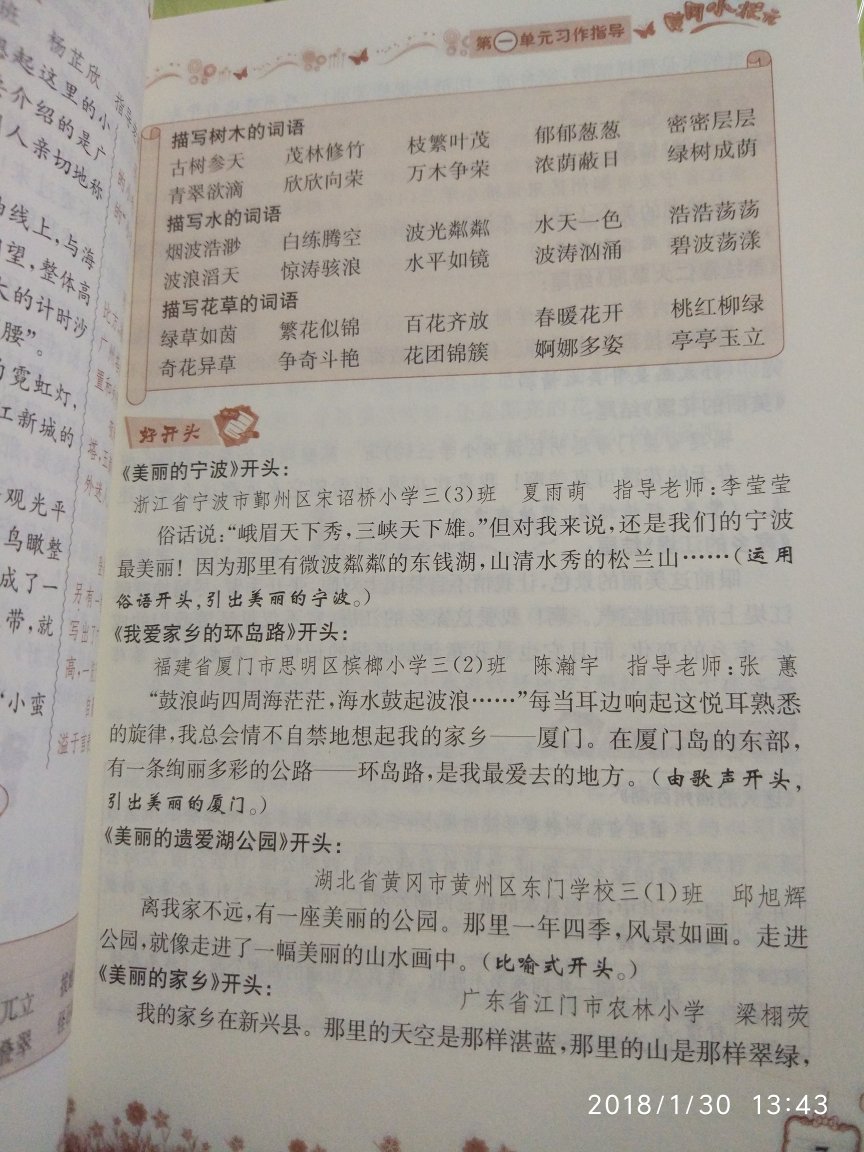 班 杨芷欣
想起这里的小
介绍的是广
人亲切地称
线上，与海
望，整体高
大的计时沙
腰”。
霓虹灯，
江新城的
观光平
鸟瞰整
成了一
带，就
“小蛮
兀立
叠翠
黄冈小状元
第一单元习作指导
描写树木的词语
古树参天 茂林修竹 枝繁叶茂 郁郁葱葱 密密层层
青翠欲滴 欣欣向荣 万木争荣 浓荫蔽日 绿树成荫
描写水的词语
烟波浩渺 白练腾空 波光粼粼 水天一色 浩浩荡荡
波浪滔天 惊涛骇浪 水平如镜 波涛汹涌 碧波荡漾
描写花草的词语
绿草如茵 繁花似锦 百花齐放 春暖花开 桃红柳绿
奇花异草 争奇斗艳 花团锦簇 婀娜多姿 亭亭玉立
好开头
《美丽的宁波》开头：
浙江省宁波市鄞州区宋诏桥小学三(3)班 夏雨萌 指导老师：李莹莹
俗话说：“峨眉天下秀，三峡天下雄。”但对我来说，还是我们的宁波
最美丽！因为那里有微波粼粼的东钱湖，山清水秀的松兰山……(运用
俗语开头，引出美丽的宁波。)
《我爱家乡的环岛路》开头：
福建省厦门市思明区槟榔小学三(2)班 陈瀚宇 指导老师：张 蕙
“鼓浪屿四周海茫茫，海水鼓起波浪……”每当耳边响起这悦耳熟悉
的旋律，我总会情不自禁地想起我的家乡——厦门。在厦门岛的东部，
有一条绚丽多彩的公路——环岛路，是我最爱去的地方。(由歌声开头，
引出美丽的厦门。)
《美丽的遗爱湖公园》开头：
湖北省黄冈市黄州区东门学校三(1)班 邱旭辉
离我家不远，有一座美丽的公园。那里一年四季，风景如画。走进
公园，就像走进了一幅美丽的山水画中。(比喻式开头。)
《美丽的家乡》开头：
广东省江门市农林小学 梁栩荧
我的家乡在新兴县。那里的天空是那样湛蓝，那里的山是那样翠绿，
2018/1/30 13:43